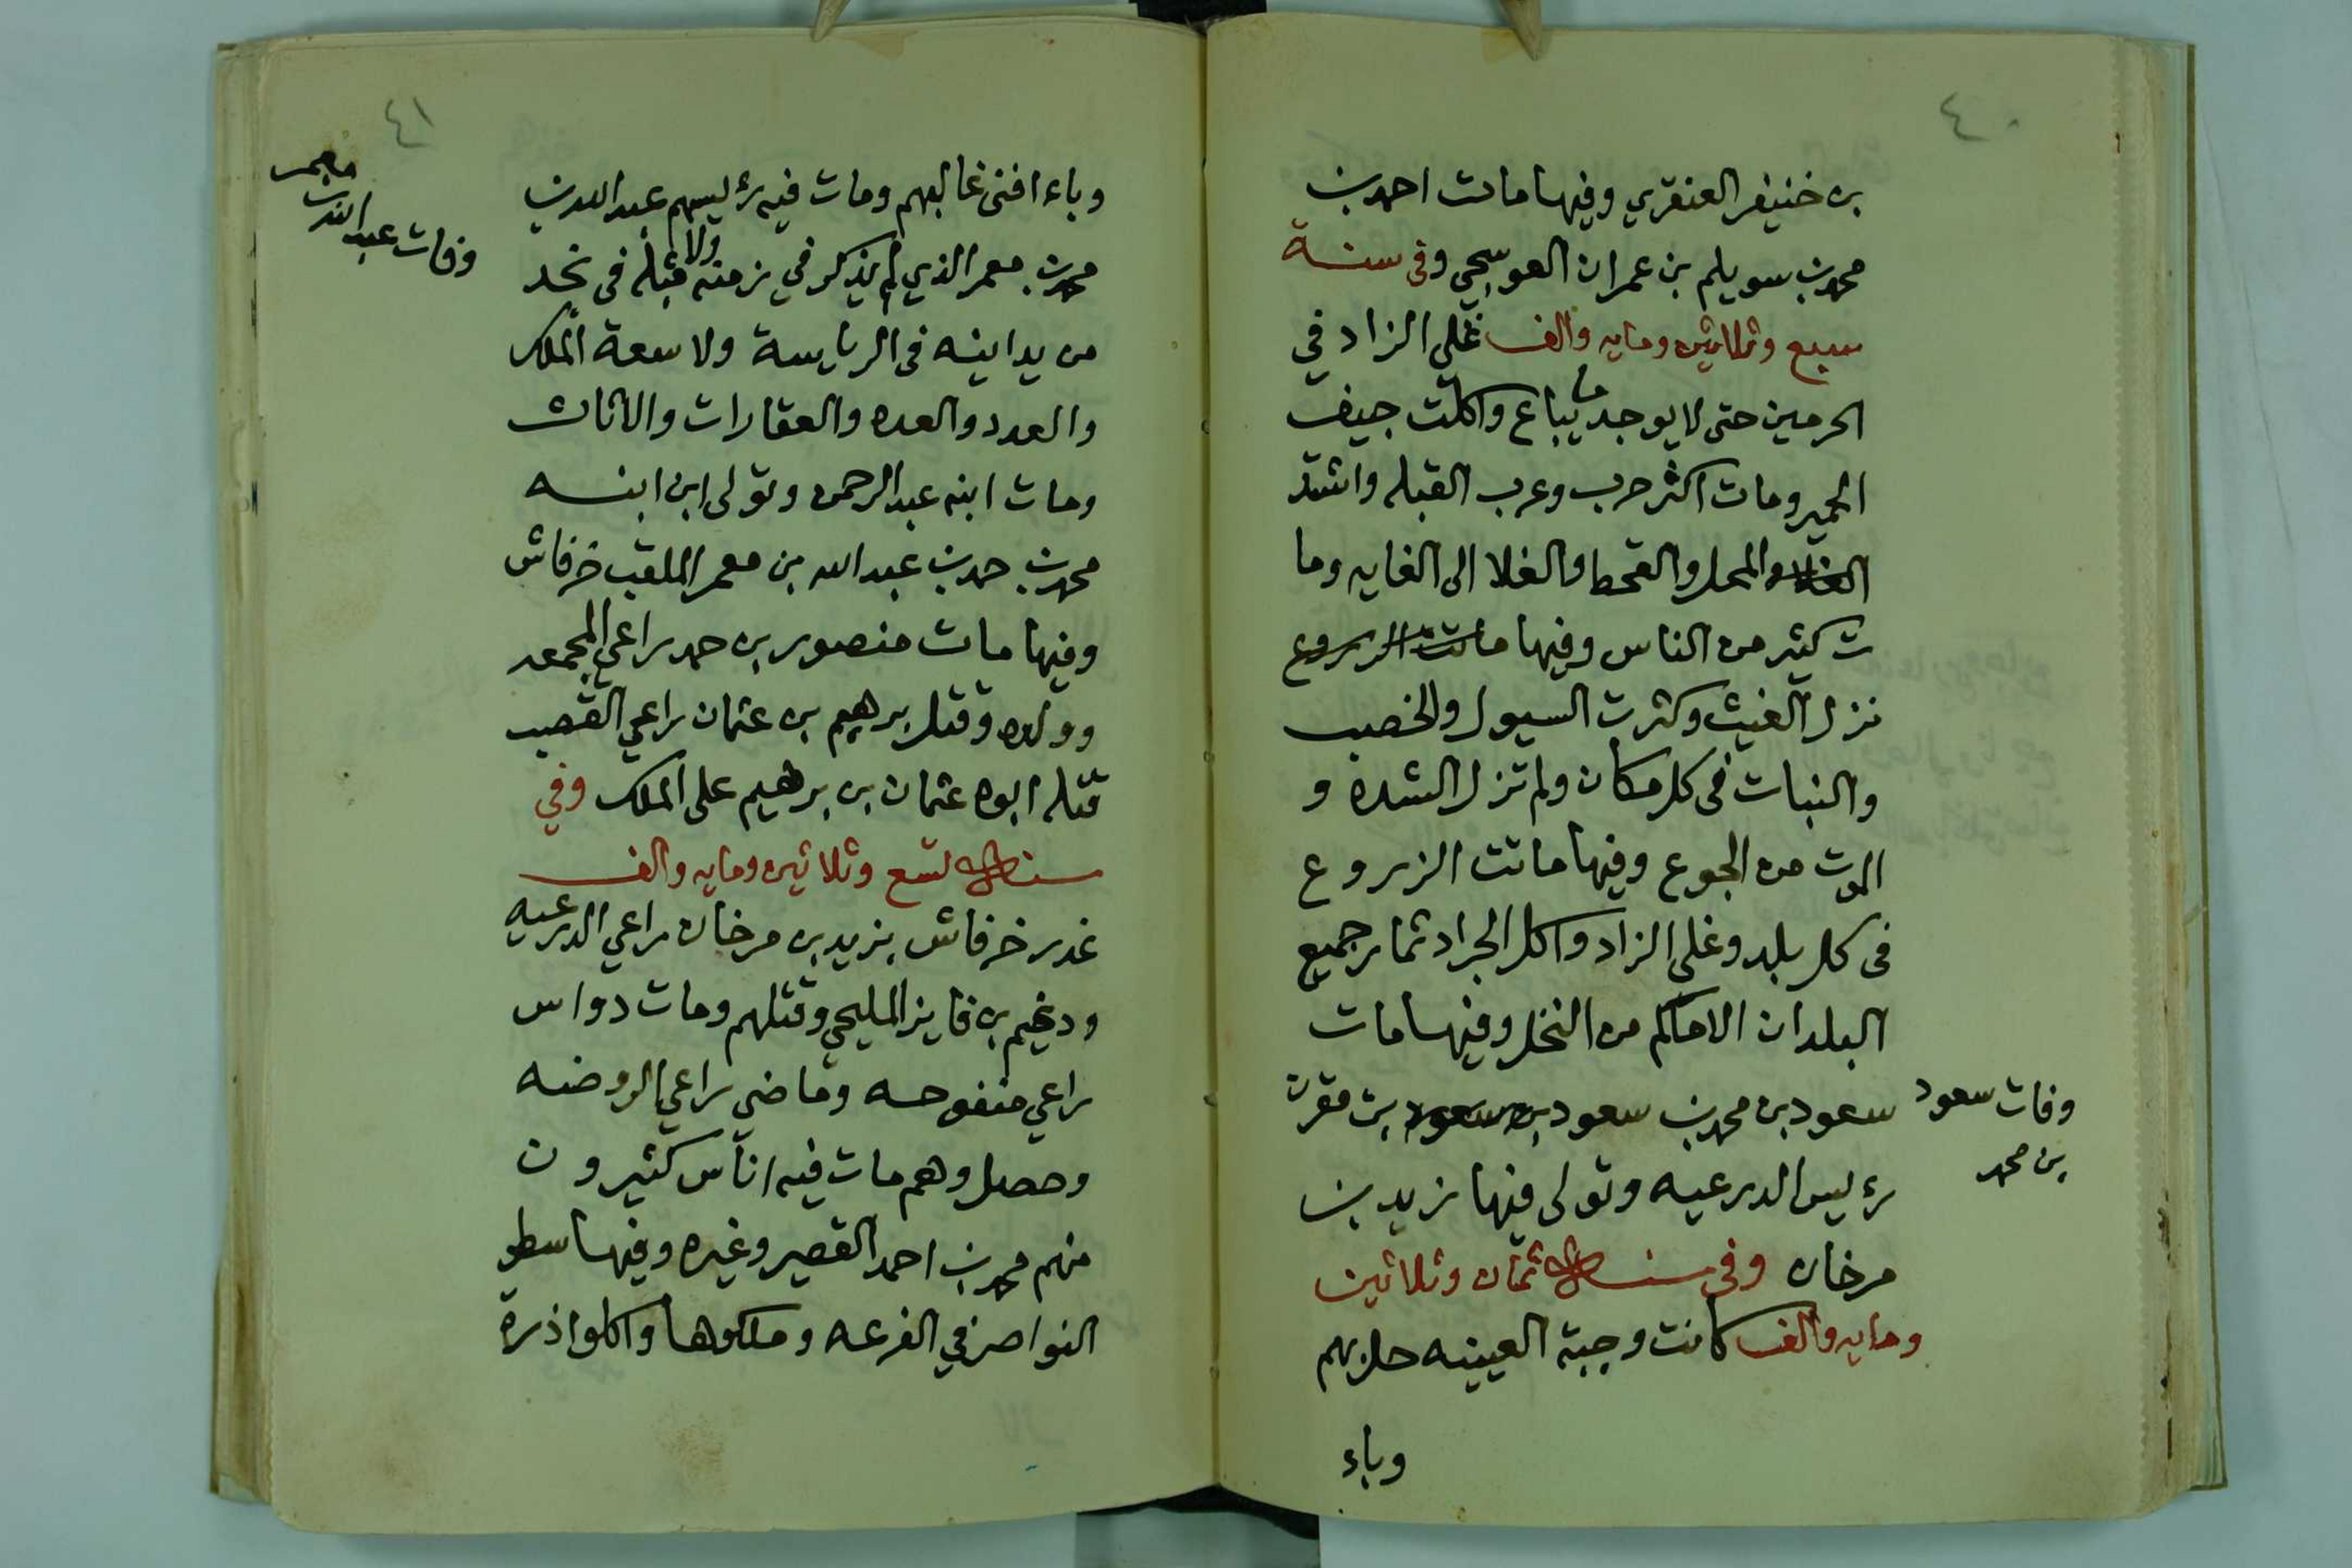 ٤٠
بن خنيفر العنقري وفيها مات احمد بن
محمد بن سويلم بن عمران العوسجي وفي سنة
سبع وثلاثين ومايه والف غلي الزاد في
الحرمين حتى لا يوجد ما يباع واكلت جيف
الحمير ومات اكثر حرب وعرب القبله واشتد
الغلاء والمحل والقحط والغلا الى الغايه وما
ت كثير من الناس وفيها ماتت الزروع
نزل الغيث وكثرت السيول والخصب
والنبات في كل مكان ولم تزل الشده و
الموت من الجوع وفيها ماتت الزروع
في كل بلد وغلي الزاد واكل الجراد ثمار جميع
البلدان الا ماكم من النخل وفيها مات
سعود بن محمد بن سعود بن سعود بن مقرن
رءيس الدرعيه وتولى فيها زيد بن
مرخان وفي سنة ثمان وثلاثين
ومايه والف كانت وجبة العيينه حل بهم
وباء
وفات سعود
بن محمد
٤١
وباء افنى غالبهم ومات فيه رءيسهم عبدالله بن
محمد بن معمر الذي لم يذكر في زمنه ولا قبله في نجد
من يدانيه في الرياسة ولا سعة الملك
والعدد والعده والعقارات والاثاث
ومات ابنه عبدالرحمن وتولى ابن ابنه
محمد بن حمد بن عبدالله بن معمر الملقب خرفاش
وفيها مات منصور بن حمد راعي المجمعه
وولده وقتل برهيم بن عثمان راعي القصب
قتله ابوه عثمان بن برهيم على الملك وفي
سنة تسع وثلاثين ومايه والف
غدر خرفاش بزيد بن مرخان راعي الدرعيه
ودغيم بن فايز المليحي وقتلهم ومات دواس
راعي منفوحه وماضي راعي الروضه
وحصل وهم مات فيه اناس كثيرون
منهم محمد بن احمد القصير وغيره وفيها سطو
النواصر في الفرعه وملكوها واكلوا ذرة
وفات عبدالله بن
معمر